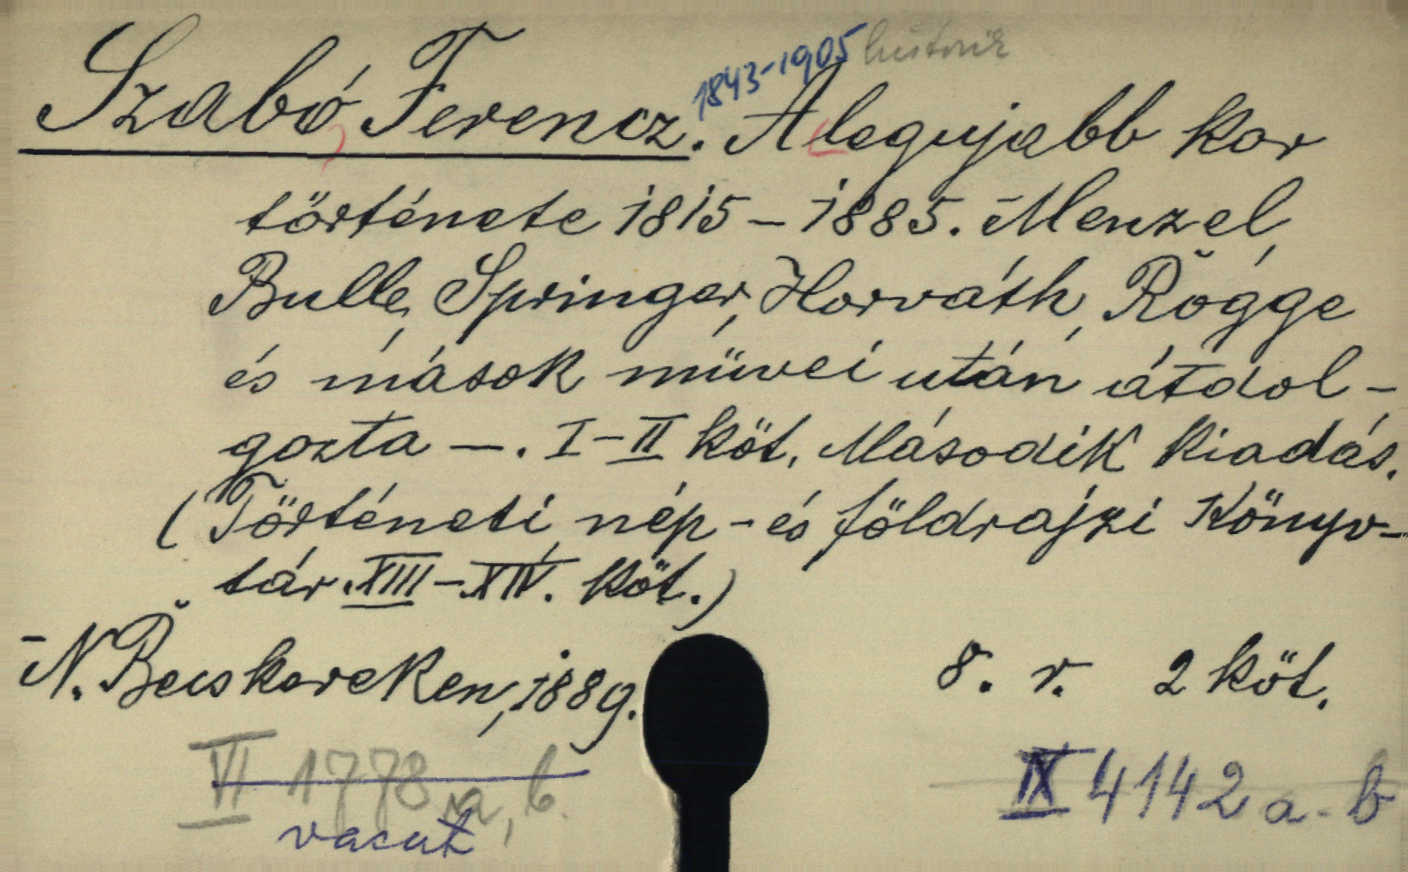 Szabó Ferencz. 1843-1905 A legujabb kor
története 1815-1885. Menzel,
Bulle, Springer, Horváth, Rőgge
és mások művei után átdol-
gozta —. I-II köt. Második kiadás.
(Történeti, nép- és földrajzi Könyv-
tár. XIII-XIV. köt.)
N. Becskereken, 1889. 8. r. 2 köt.
VI 1778 a, b.
vacat
IX 4142 a-b